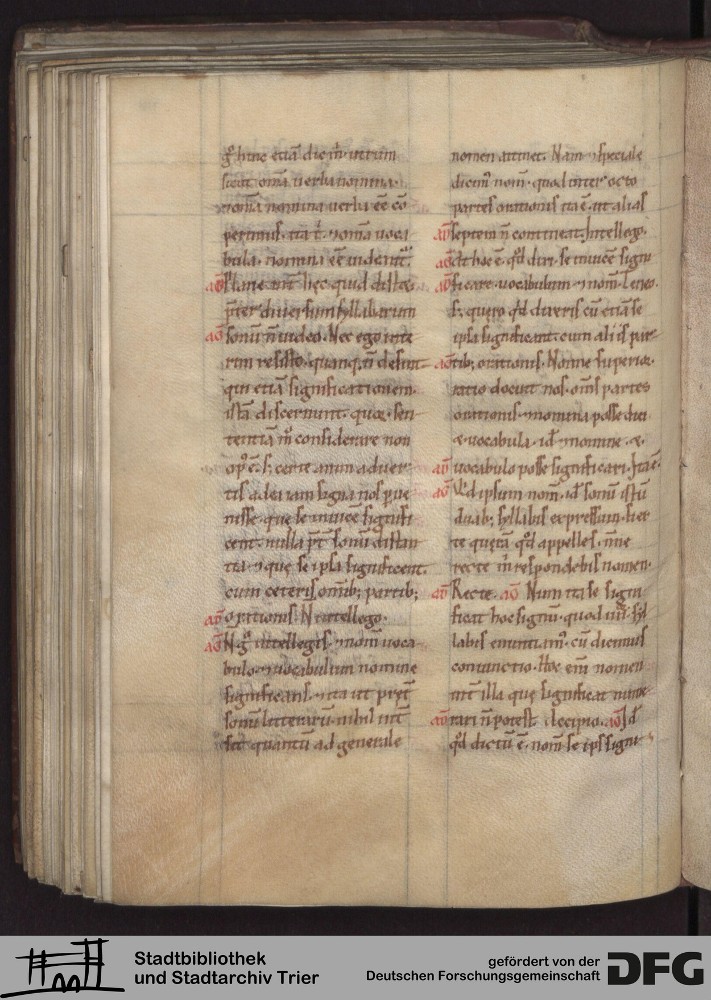 g° hinc etiā dic m̄. utrum
sicut om̄a uerba nomina.
n om̄a nomina uerba eē cō
perimus. ita t̄. nom̄a uoca
bula. nomina eē uident̄.
plane int̄ hęc quid distet
pter diuersum syllabarum
aḡ sonū n̄ uideo. Nec ego inte
rim resisto. quanq; n̄ desint
qui etiā significationem
ista discernunt. quoꝝ sen
tentiā m̄ considerare non
op° ē. s; certe anim aduer
tis ad ea iam signa nos p̄ue
nisse. quę se inuicē signifi
cent. nulla pt̄ sonū distan
tia. ⁊ quę se ipsa significent.
cum ceteris om̄ib; partib;
orationis. N intellego.
aḡ N g° intellegis. nom̄ uoca
bulo. ⁊ uocabulum nomine
significari. ⁊ ita ut pręt̄
sonū litterarū nihil int̄
sit quantū ad generale
nomen attinet. Nam ⁊ speciale
dicim̄ nom̄. quod inter octo
partes orationis ita ē. ut alias
septem n̄ contineat. Intellego.
At hoc ē. qd̄ dixi. se inuicē signi
ficare. uocabulum ⁊ nom̄. Teneo.
S; quero qd̄ dixeris cū etiā se
ipsa significant. cum aliis par
tib; orationis. Nonne superior
ratio docuit nos. om̄s partes
orationis. ⁊ nomina posse dici
⁊ uocabula. id ⁊ nomine. ⁊
uocabulo posse significari. Ita ē.
Qd̄ ipsum nom̄. id sonū istū
duab; syllabis expressum. si ex
te querā qd̄ appelles. n̄ne
recte m̄ respondebis nomen.
Recte. Num ita se signi
ficat hoc signū. quod iiii. syl
labis enuntiam̄. cū dicimus
coniunctio. Hoc em̄ nomen
int̄ illa quę significat nume
rari n̄ potest. Accipio. Id
qd̄ dictū ē. nom̄ se ips signi
Stadtbibliothek
und Stadtarchiv Trier
gefördert von der
Deutschen Forschungsgemeinschaft
DFG